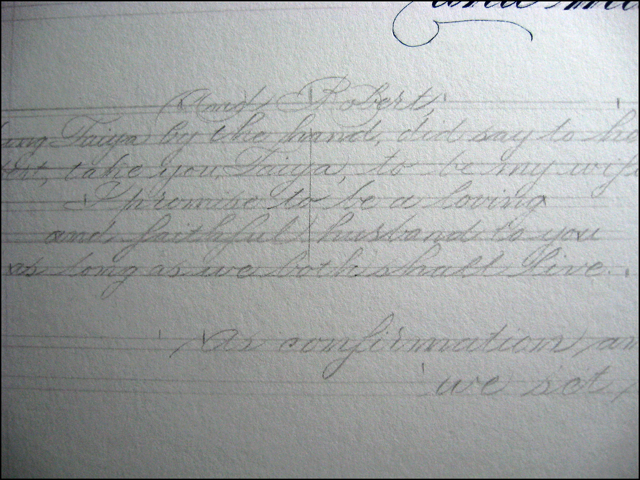 And
And Robert,
Taiya by the hand, did say to
take you, Taiya, to be my wife
I promise to be a loving
and faithful husband to you
as long as we both shall live.
As confirmation
we set